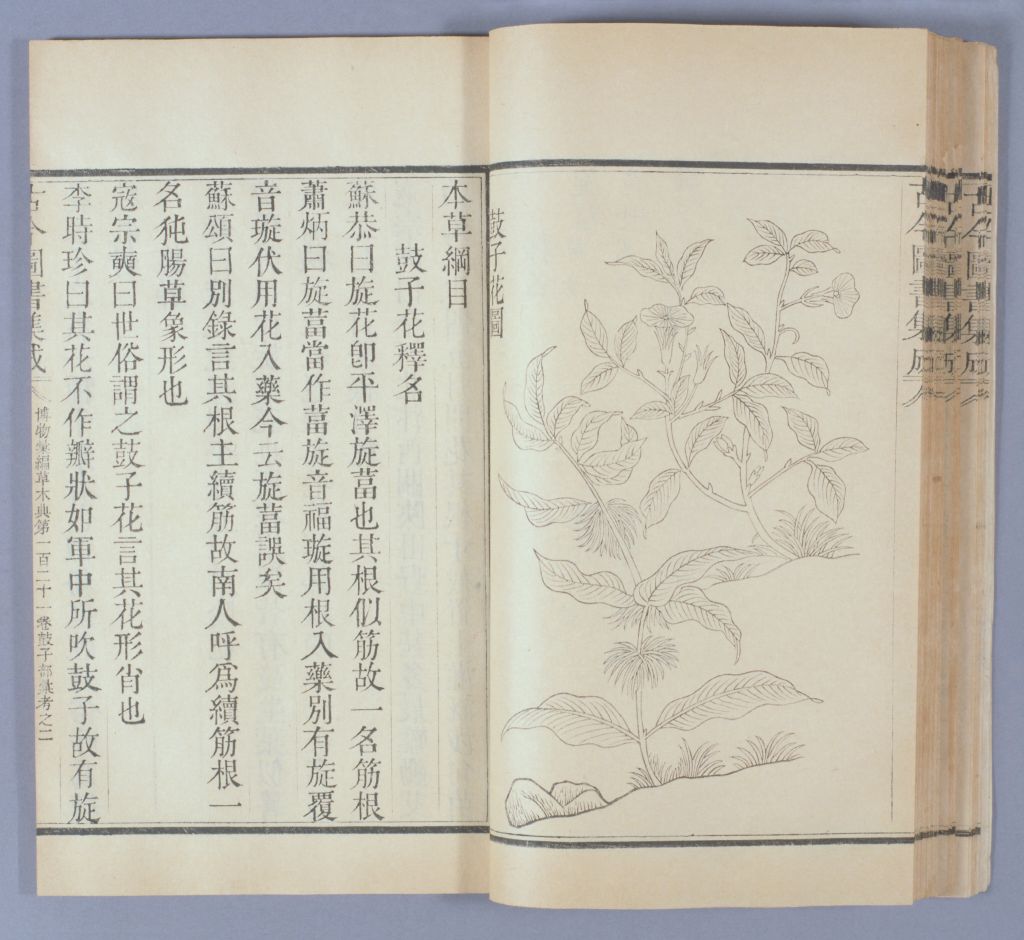 鼓子花圖
本草綱目
鼓子花釋名
蘇恭曰旋花卽平澤旋葍也其根似筋故一名筋根
蕭炳曰旋葍當作葍旋音福璇用根入藥別有旋覆
音璇伏用花入藥今云旋葍誤矣
蘇頌曰別錄言其根主續筋故南人呼爲續筋根一
名㹠腸草象形也
寇宗奭曰世俗謂之鼓子花言其花形肖也
李時珍曰其花不作瓣狀如軍中所吹鼓子故有旋
古今圖書集成
博物彙編草木典第一百二十一卷鼓子部彙考之二